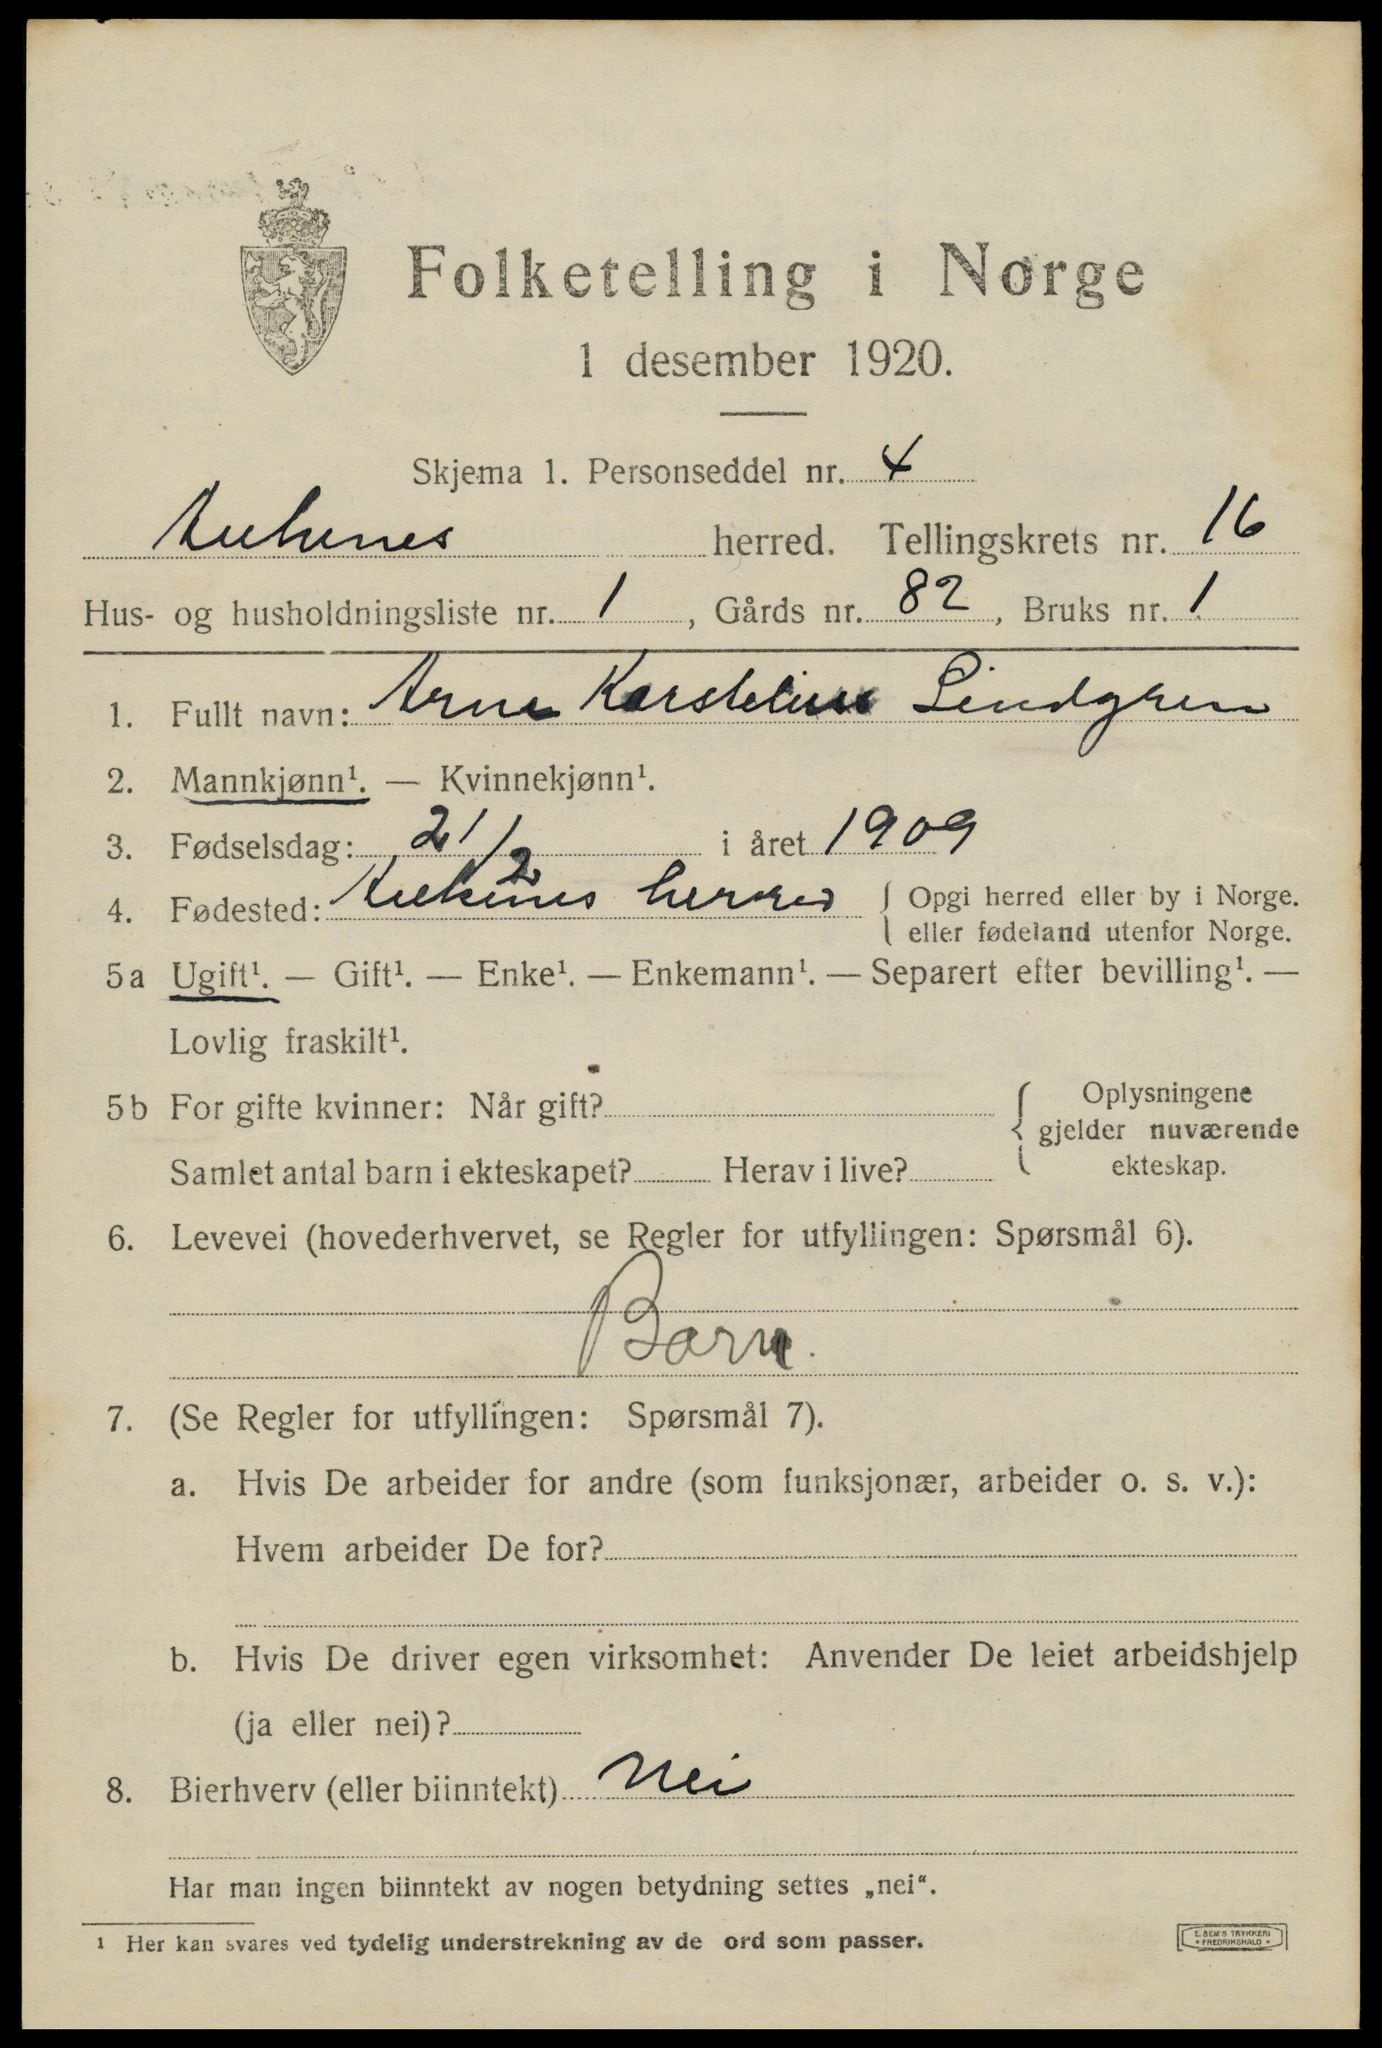 Folketelling i Norge
1 desember 1920.
Skjema 1. Personseddel nr. 4
herred. Tellingskrets nr. 16
Hus- og husholdningsliste nr. 1, Gårds nr. 82, Bruks nr. 1
1. Fullt navn: Arne Karstelius Lindgren
2. Mannkjønn¹. — Kvinnekjønn¹.
3. Fødselsdag: 21/2 i året 1909
4. Fødested: herred { Opgi herred eller by i Norge.
eller fødeland utenfor Norge.
5a Ugift¹. — Gift¹. — Enke¹. — Enkemann¹. — Separert efter bevilling¹. —
Lovlig fraskilt¹.
5b For gifte kvinner: Når gift?
Samlet antal barn i ekteskapet? Herav i live?
Oplysningene
gjelder nuværende
ekteskap.
6. Levevei (hovederhvervet, se Regler for utfyllingen: Spørsmål 6).
Barn.
7. (Se Regler for utfyllingen: Spørsmål 7).
a. Hvis De arbeider for andre (som funksjonær, arbeider o. s. v.):
Hvem arbeider De for?
b. Hvis De driver egen virksomhet: Anvender De leiet arbeidshjelp
(ja eller nei)?
8. Bierhverv (eller biinntekt) Nei
Har man ingen biinntekt av nogen betydning settes „nei“.
¹ Her kan svares ved tydelig understrekning av de ord som passer.
E. SEM'S TRYKKERI
• FREDRIKSHALD •